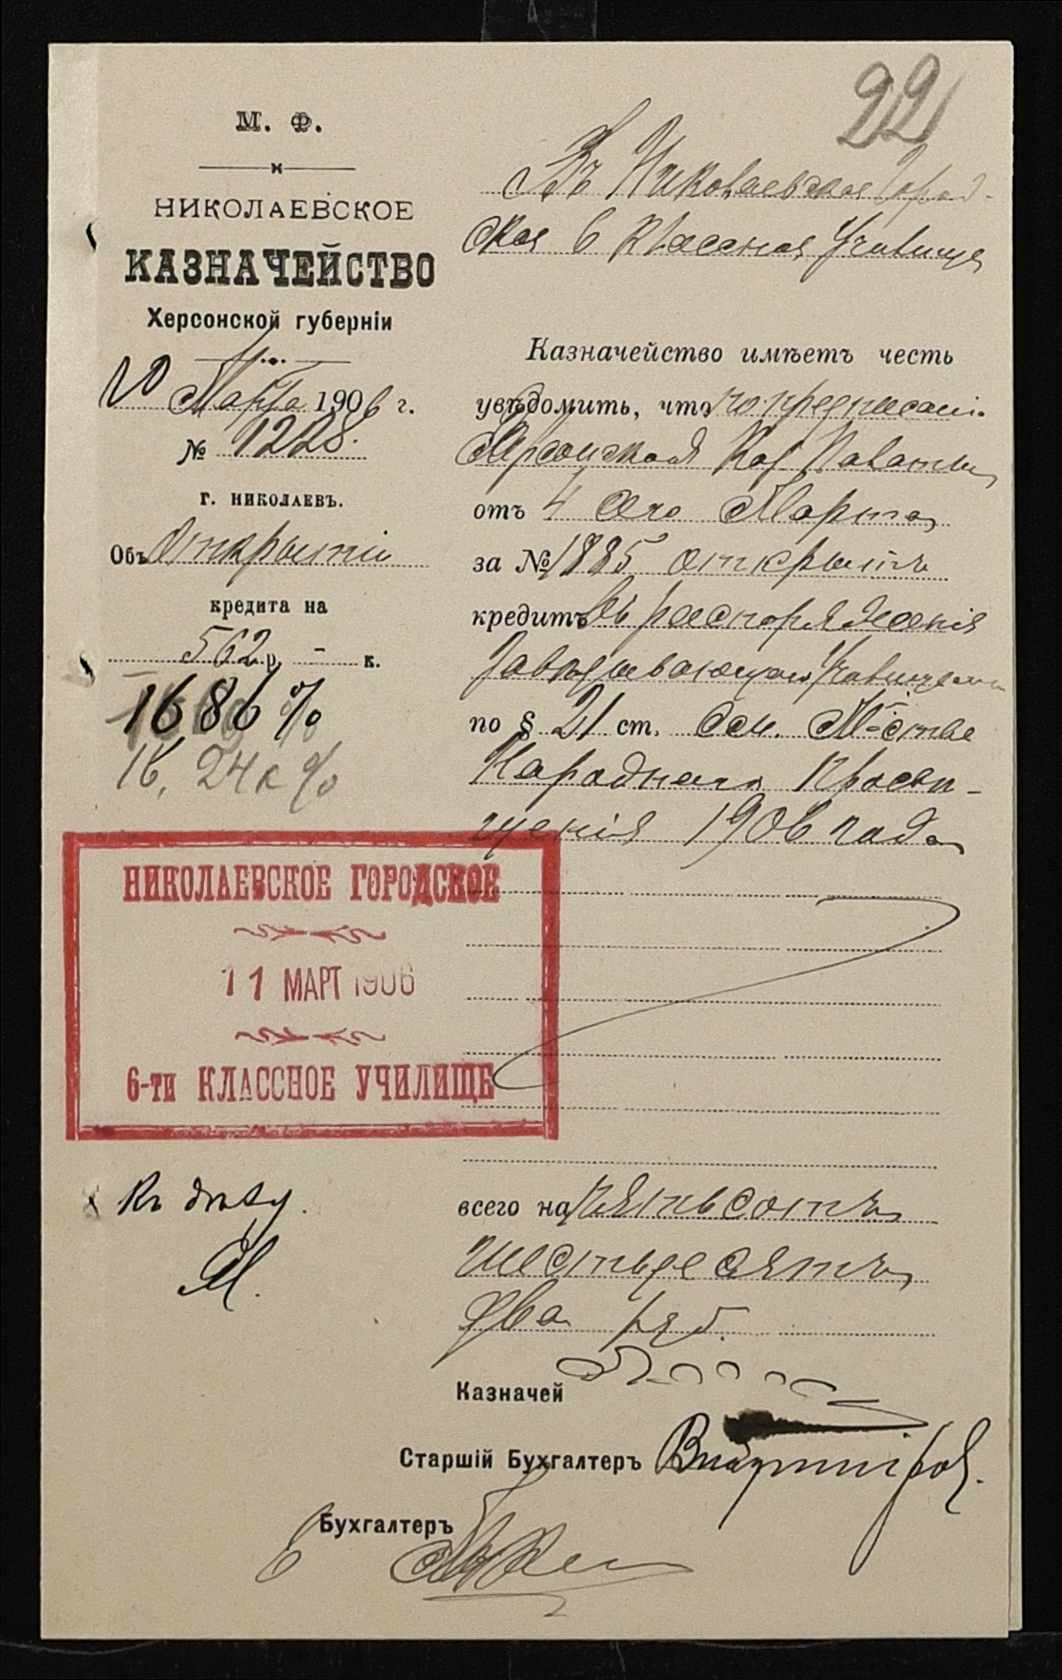 22
М. Ф.
НИКОЛАЕВСКОЕ
КАЗНАЧЕЙСТВО
Херсонской губерніи
10 Марта 1906 г.
№ 1228.
г. НИКОЛАЕВЪ.
Объ Открытіи
кредита на
562 р. - к.
1686 %
16, 24 к %
НИКОЛАЕВСКОЕ ГОРОДСКОЕ
11 МАРТ 1906
6-ти КЛАССНОЕ УЧИЛИЩЕ
Къ дѣлу.
Въ Николаевское Город-
ское 6 классное Училище
Казначейство имѣетъ честь
увѣдомить, что по предписанію
Херсонской Каз. Палаты
отъ 4 сего Марта
за № 1885 открытъ
кредитъ въ распоряженія
Завѣдывающаго Училищемъ
по § 21 ст. см. М-ства
Народнаго Просвѣ-
щенія 1906 года
всего на пятьсотъ
шестьдесятъ
два руб.
Казначей
Старшій Бухгалтеръ
Бухгалтеръ